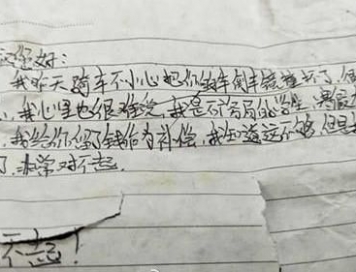 您好:
我昨天骑车不小心把你的车倒车镜碰坏了,
,我心里也很难受,我是不的学生,
我给你们留了钱作为补偿,我知道这不够 但是
了,非常对不起.
不起!